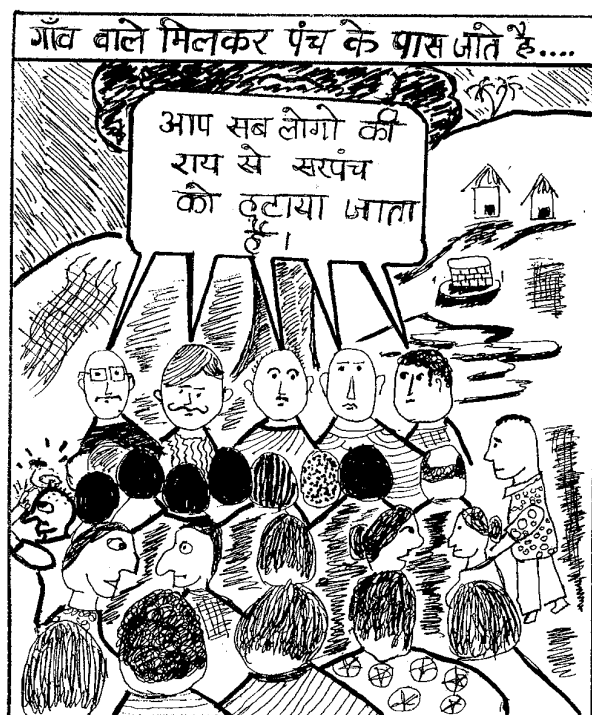 गाँव वाले मिलकर पंच के पास जाते है....
आप सब लोगो की
राय से सरपंच
को हटाया जाता
है।